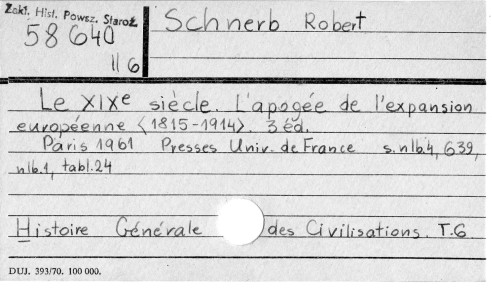 Zakł. Hist. Powsz. Staroż.
58640
II 6
Schnerb Robert
Le XIXe siècle. L'apogée de l'expansion
européenne <1815-1914>. 3 éd.
Paris 1961 Presses Univ. de France s. nlb.4, 639,
nlb.1, tabl.24
Histoire Générale des Civilisations. T.6
DUJ. 393/70. 100 000.